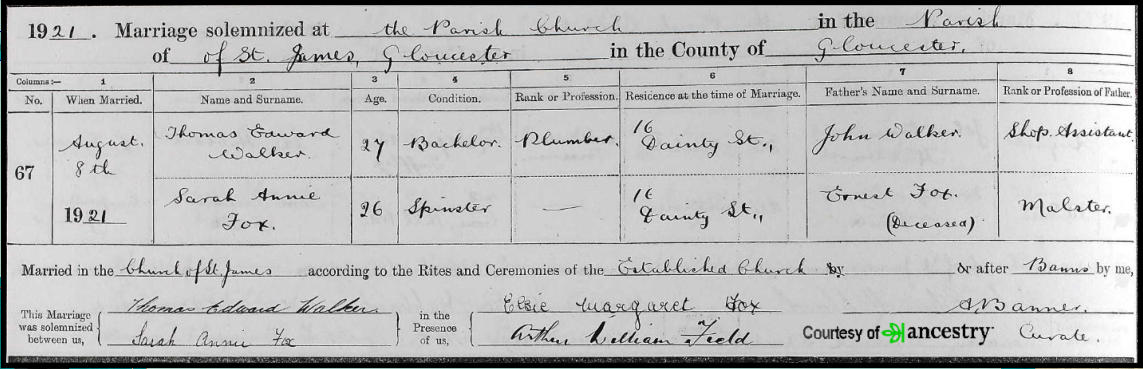 1921. Marriage solemnized at the Parish Church in the Parish
of of St. James, Gloucester in the County of Gloucester.
Columns:— 1 2 3 4 5 6 7 8
No. When Married. Name and Surname. Age. Condition. Rank or Profession. Residence at the time of Marriage. Father's Name and Surname. Rank or Profession of Father.
67 August. 8th 1921
Thomas Edward Walker. 27 Bachelor. Plumber. 16 Dainty St., John Walker. Shop Assistant
Sarah Annie Fox. 26 Spinster — 16 Dainty St., Ernest Fox. (Deceased) Malster.
Married in the Church of St. James according to the Rites and Ceremonies of the Established Church by or after Banns by me,
This Marriage was solemnized between us, Thomas Edward Walker Sarah Annie Fox in the Presence of us, Elsie Margaret Fox Arthur William Field A Banner. Curate.
Courtesy of ancestry